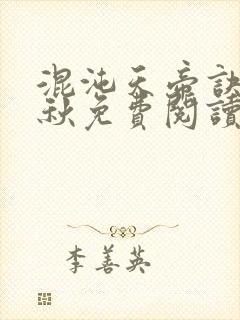 混沌天帝訣
秋免費閱讀
李善英